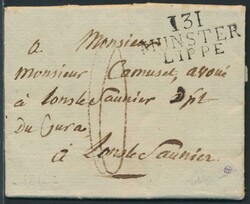 131
MUNSTER
LIPPE
a Monsieur
Monsieur Camuset, avoué
à Lons le Saunier Dpt
du Jura
à Lons le Saunier.